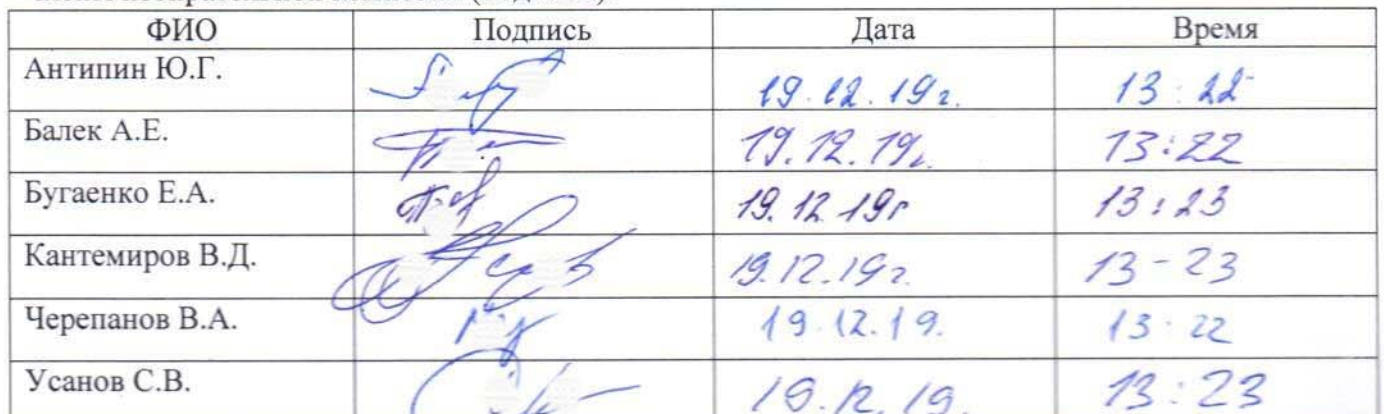 ФИО Подпись Дата Время
Антипин Ю.Г. 19.12.19г. 13:22
Балек А.Е. 19.12.19г. 13:22
Бугаенко Е.А. 19.12.19г 13:23
Кантемиров В.Д. 19.12.19г. 13-23
Черепанов В.А. 19.12.19. 13:22
Усанов С.В. 19.12.19. 13:23